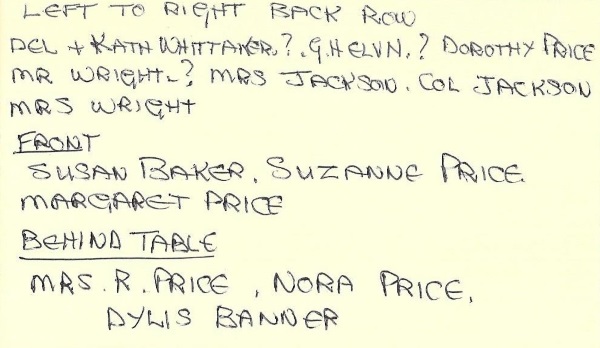 LEFT TO RIGHT BACK ROW
DEL + KATH WHITTAKER, ?. G. HELVN, ? DOROTHY PRICE
MR WRIGHT. ? MRS JACKSON. COL JACKSON
MRS WRIGHT
FRONT
SUSAN BAKER, SUZANNE PRICE
MARGARET PRICE
BEHIND TABLE
MRS. R. PRICE, NORA PRICE,
DYLIS BANNER